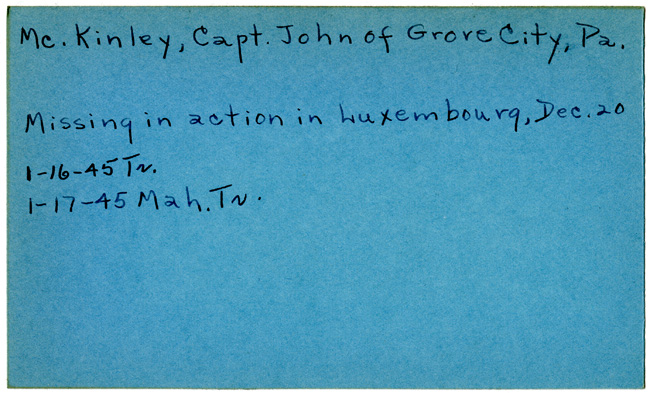 Mc. Kinley, Capt. John of Grove City, Pa.
Missing in action in Luxembourg, Dec. 20
1-16-45 Tr.
1-17-45 Mah. Tr.